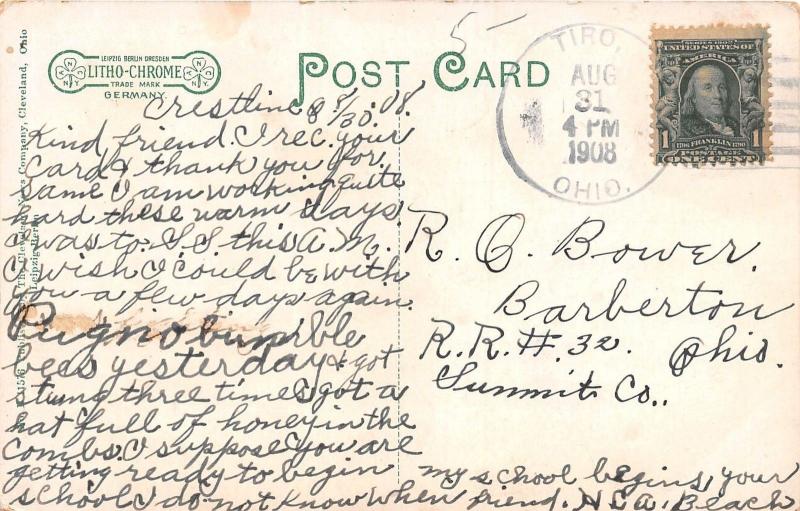 5-
LEIPZIG BERLIN DRESDEN
LITHO-CHROME
TRADE MARK
GERMANY.
POST CARD
TIRO,
AUG
31
4 PM
1908
OHIO.
SERIES 1902
UNITED STATES OF
AMERICA
1 1
1706 FRANKLIN 1790
POSTAGE
ONE CENT
Crestline O 8/30. 08.
Kind friend. I rec. your
Card & thank you for
same I am working quite
hard these warm days.
I was to. S. S this A. M.
I wish I could be with
you a few days again.
bumble
bees yesterday & got
stung three times got a
hat full of honey in the
combs. I suppose you are
getting ready to begin
school I do not know when
my school begins, your
friend. Beach
R. O. Bower.
Barberton
R. R. #. 32. Ohio.
Summit Co..
The Cleveland News Company, Cleveland, Ohio
Leipzig-Berlin